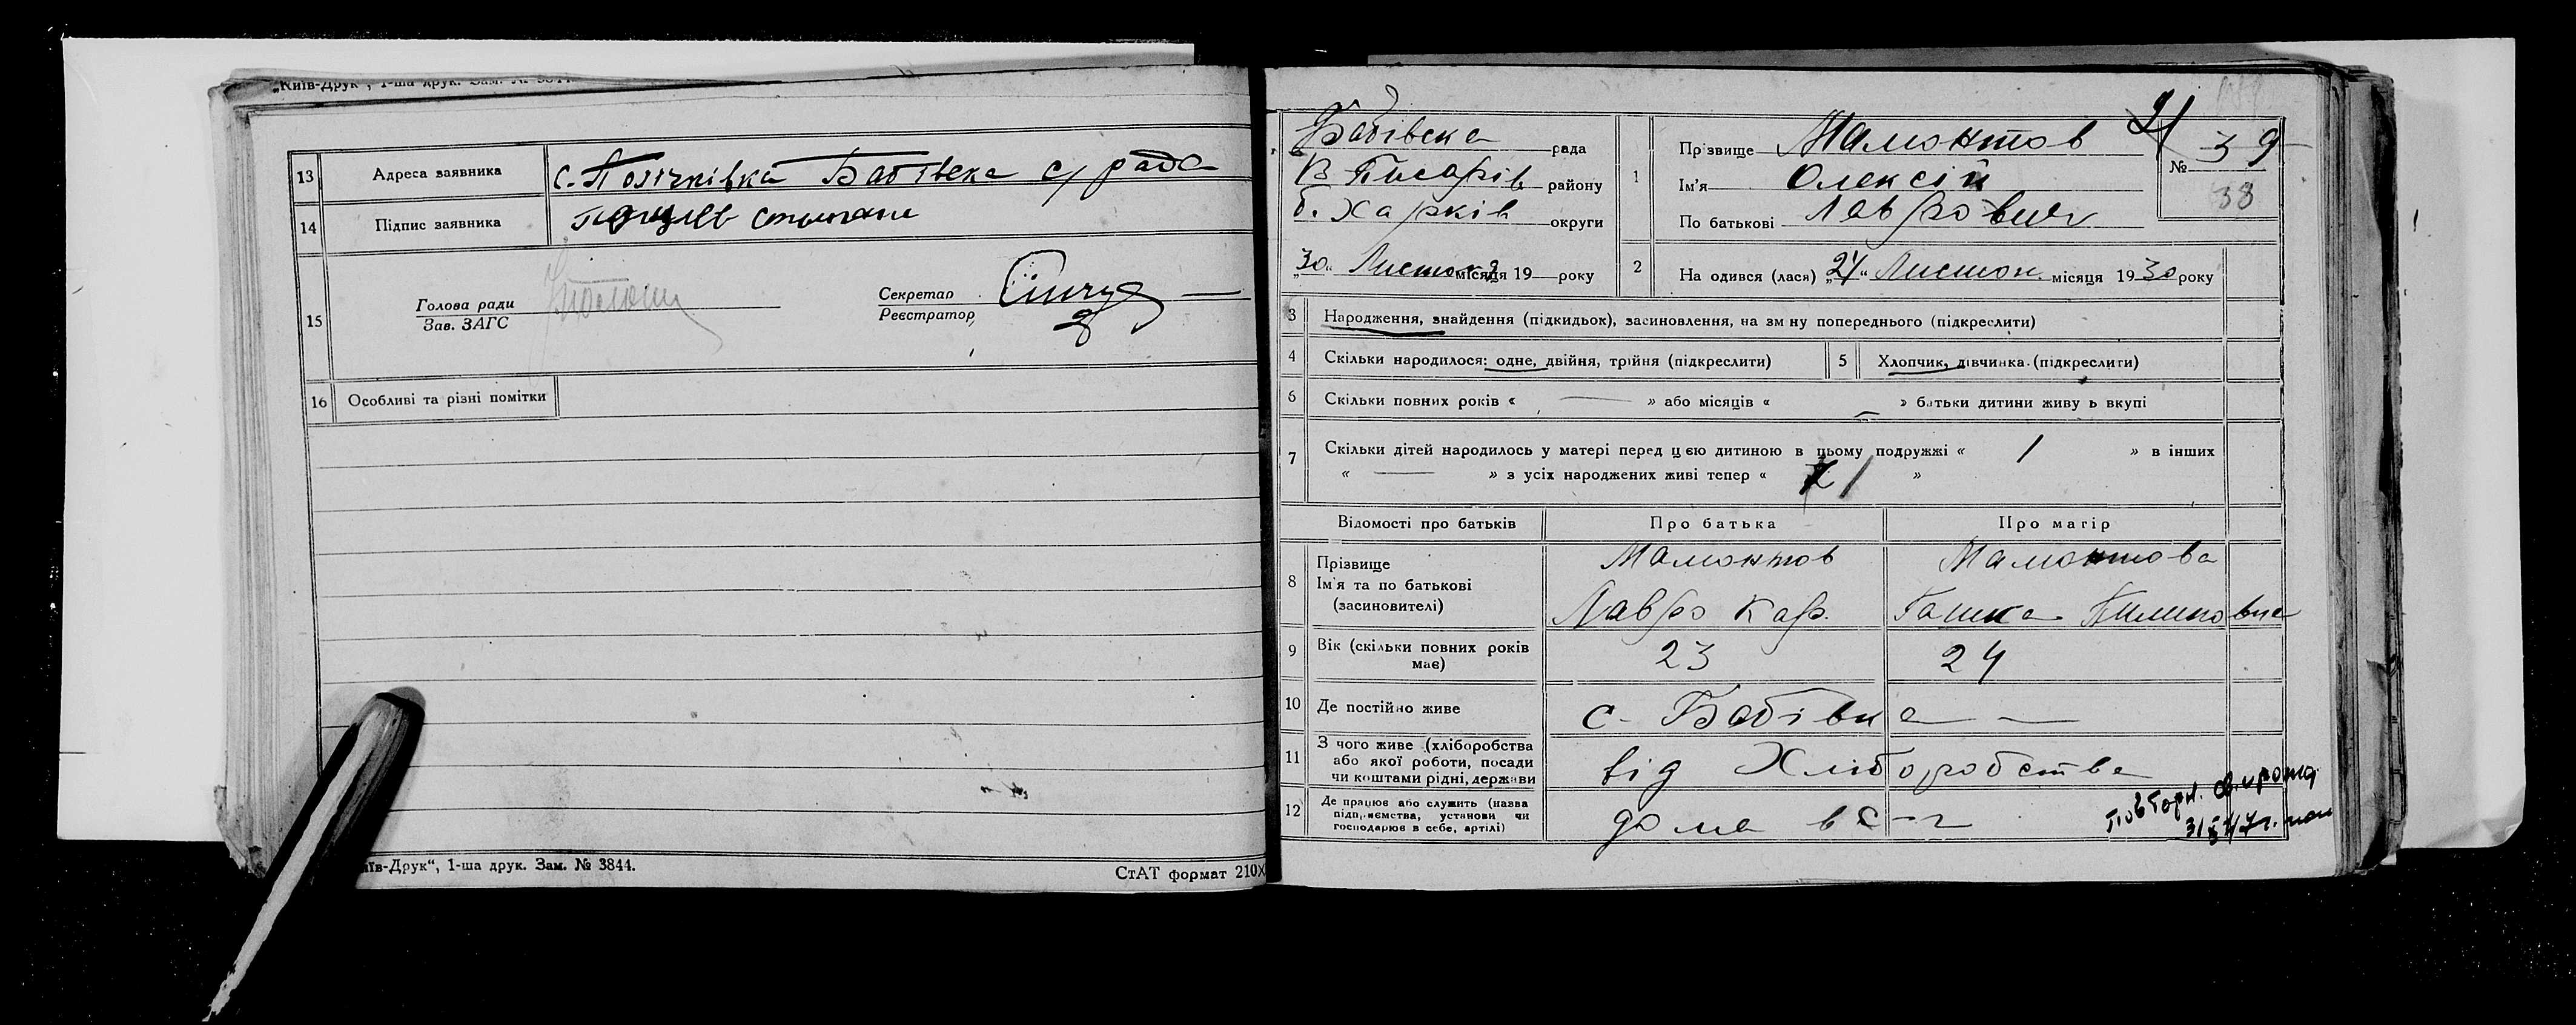 „Київ-Друк“, 1-ша друк. Зам. № 3844.
13 Адреса заявника с. Полічківка Бабівска с/рада
14 Підпис заявника
15 Голова ради
Зав. ЗАГС
Секретар
Реєстратор
16 Особливі та різні помітки
„Київ-Друк“, 1-ша друк. Зам. № 3844. СтАТ формат 210Х
Бабівска рада
В Писарів району
б. Харків округи
„30“ Листоп місяця 19 року
1 Прізвище Мамонтов
Ім'я Олексій
По батькові Лаврович
21
№ 39
38
2 Народився (лася) „21“ Листоп. місяця 1930 року
3 Народження, знайдення (підкидьок), засиновлення, на зміну попереднього (підкреслити)
4 Скільки народилося: одне, двійня, трійня (підкреслити) 5 Хлопчик, дівчинка. (підкреслити)
6 Скільки повних років « — » або місяців « — » батьки дитини живуть вкупі
7 Скільки дітей народилось у матері перед цією дитиною в цьому подружжі « 1 » в інших
« — » з усіх народжених живі тепер « 1 »
Відомості про батьків Про батька Про матір
8 Прізвище Мамонтов Мамонтова
Ім'я та по батькові
(засиновителі) Лавро Кар. Ганна Пилиповна
9 Вік (скільки повних років має) 23 24
10 Де постійно живе с. Бабівка
11 З чого живе (хліборобства
або якої роботи, посади
чи коштами рідні, держави від Хліборобства
12 Де працює або служить (назва
підприємства, установи чи
господарює в себе, артілі) дома в с-г
Повторн.